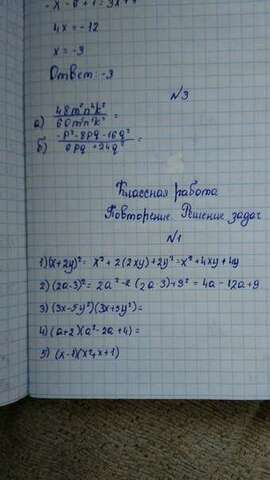 - x - 6 + 1 = 3x + 7
4x = -12
x = -3
Ответ: -3
№3
а) 48m⁵n⁴k² / 60m²n⁴k³ =
б) -p² - 8pq - 16q² / 6pq + 24q² =
Классная работа
Повторение. Решение задач
№1
1) (x+2y)² = x² + 2(2xy) + 2y² = x² + 4xy + 4y
2) (2a-3)² = 2a² - 2(2a·3) + 3² = 4a - 12a + 9
3) (3x - 5y²)(3x + 5y²) =
4) (a+2)(a² - 2a + 4) =
5) (x-1)(x² + x + 1)